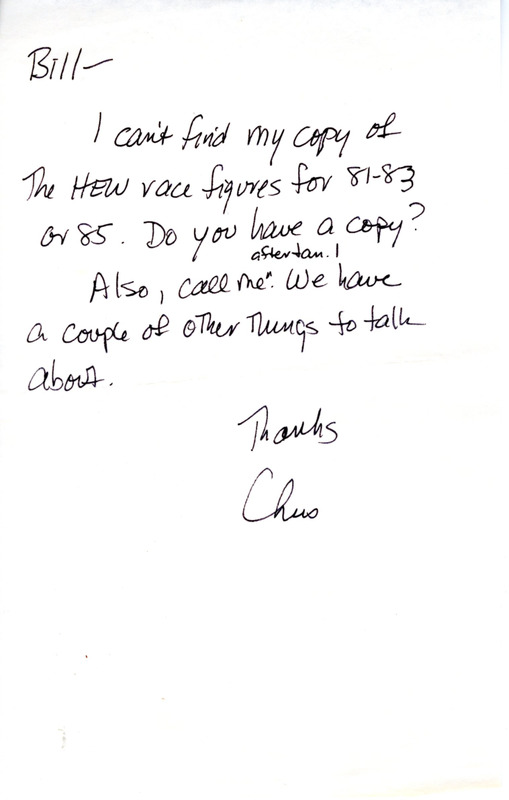 Bill—
I can't find my copy of
The HEW race figures for 81-83
or 85. Do you have a copy?
after Jan. 1
Also, call me". We have
a couple of other Things to talk
about.
Thanks
Chris